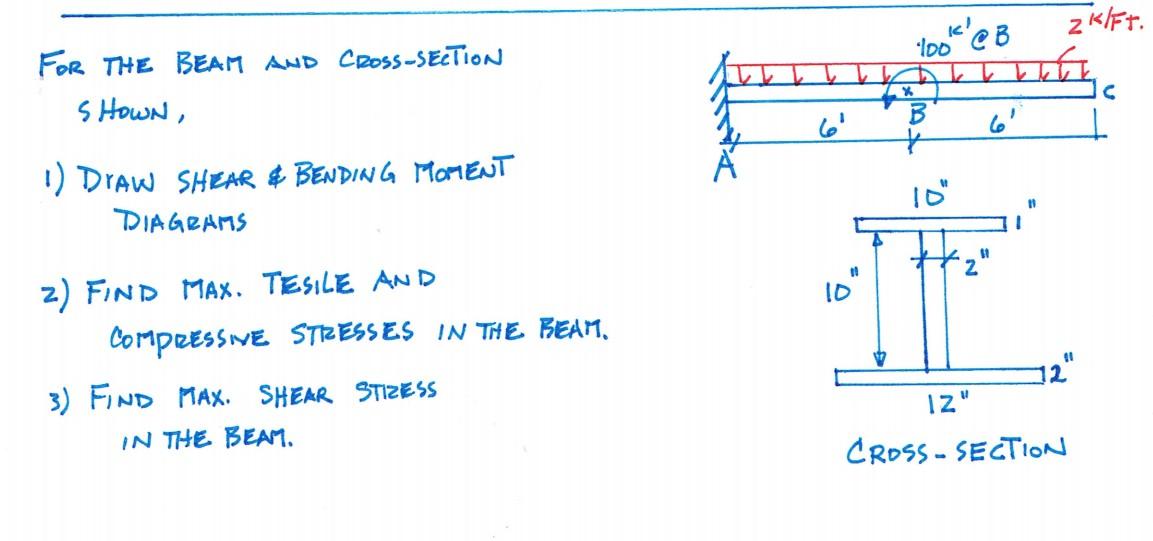 FOR THE BEAM AND CROSS-SECTION
SHOWN,
1) DRAW SHEAR & BENDING MOMENT
DIAGRAMS
2) FIND MAX. TESILE AND
COMPRESSIVE STRESSES IN THE BEAM.
3) FIND MAX. SHEAR STRESS
IN THE BEAM.
2 K/FT.
100 K' @ B
x
C
B
6'
6'
A
10"
1"
2"
10"
2"
12"
CROSS-SECTION